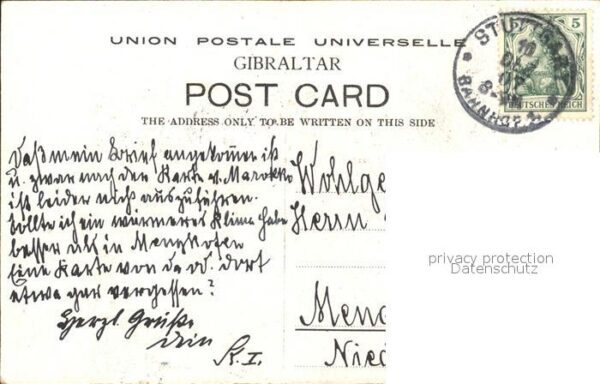 UNION POSTALE UNIVERSELLE
GIBRALTAR
POST CARD
THE ADDRESS ONLY TO BE WRITTEN ON THIS SIDE
STUTTGART
BAHNHOF
5
DEUTSCHES REICH
Daß mein Brief angekommen ist
u. zwar nach der Karte v. Marokko
ist leider nicht auszuführen.
Sollte ich ein wärmeres Klima habe
besser als in
Eine Karte von da od. dort
etwa gar vergessen?
Herzl. Grüße
dein
K. I.
Wohlge
Herrn
Meng
Nied
privacy protection
Datenschutz